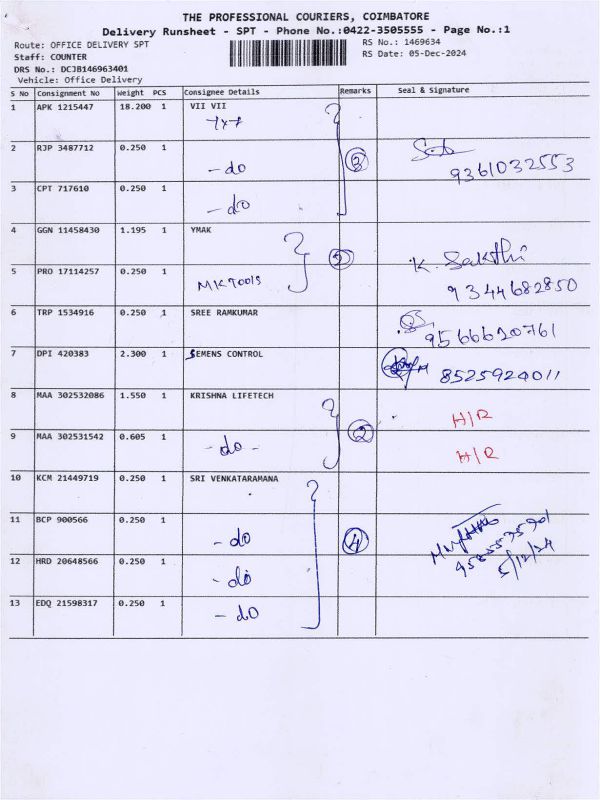 THE PROFESSIONAL COURIERS, COIMBATORE
Delivery Runsheet - SPT - Phone No.:0422-3505555 - Page No.:1
Route: OFFICE DELIVERY SPT
RS No.: 1469634
Staff: COUNTER
RS Date: 05-Dec-2024
DRS No.: DCJB146963401
Vehicle: Office Delivery
S No Consignment No Weight PCS Consignee Details Remarks Seal & Signature
1 APK 1215447 18.200 1 VII VII
2 RJP 3487712 0.250 1 - do 3
9361032553
3 CPT 717610 0.250 1 - do
4 GGN 11458430 1.195 1 YMAK
K. Sakthi
5 PRO 17114257 0.250 1 MK Tools 9344682850
6 TRP 1534916 0.250 1 SREE RAMKUMAR
9566620761
7 DPI 420383 2.300 1 SEMENS CONTROL
8525924011
8 MAA 302532086 1.550 1 KRISHNA LIFETECH H/R
9 MAA 302531542 0.605 1 - do - 2 H/R
10 KCM 21449719 0.250 1 SRI VENKATARAMANA
11 BCP 900566 0.250 1 - do 4
5/12/24
12 HRD 20648566 0.250 1 - do
13 EDQ 21598317 0.250 1 - do